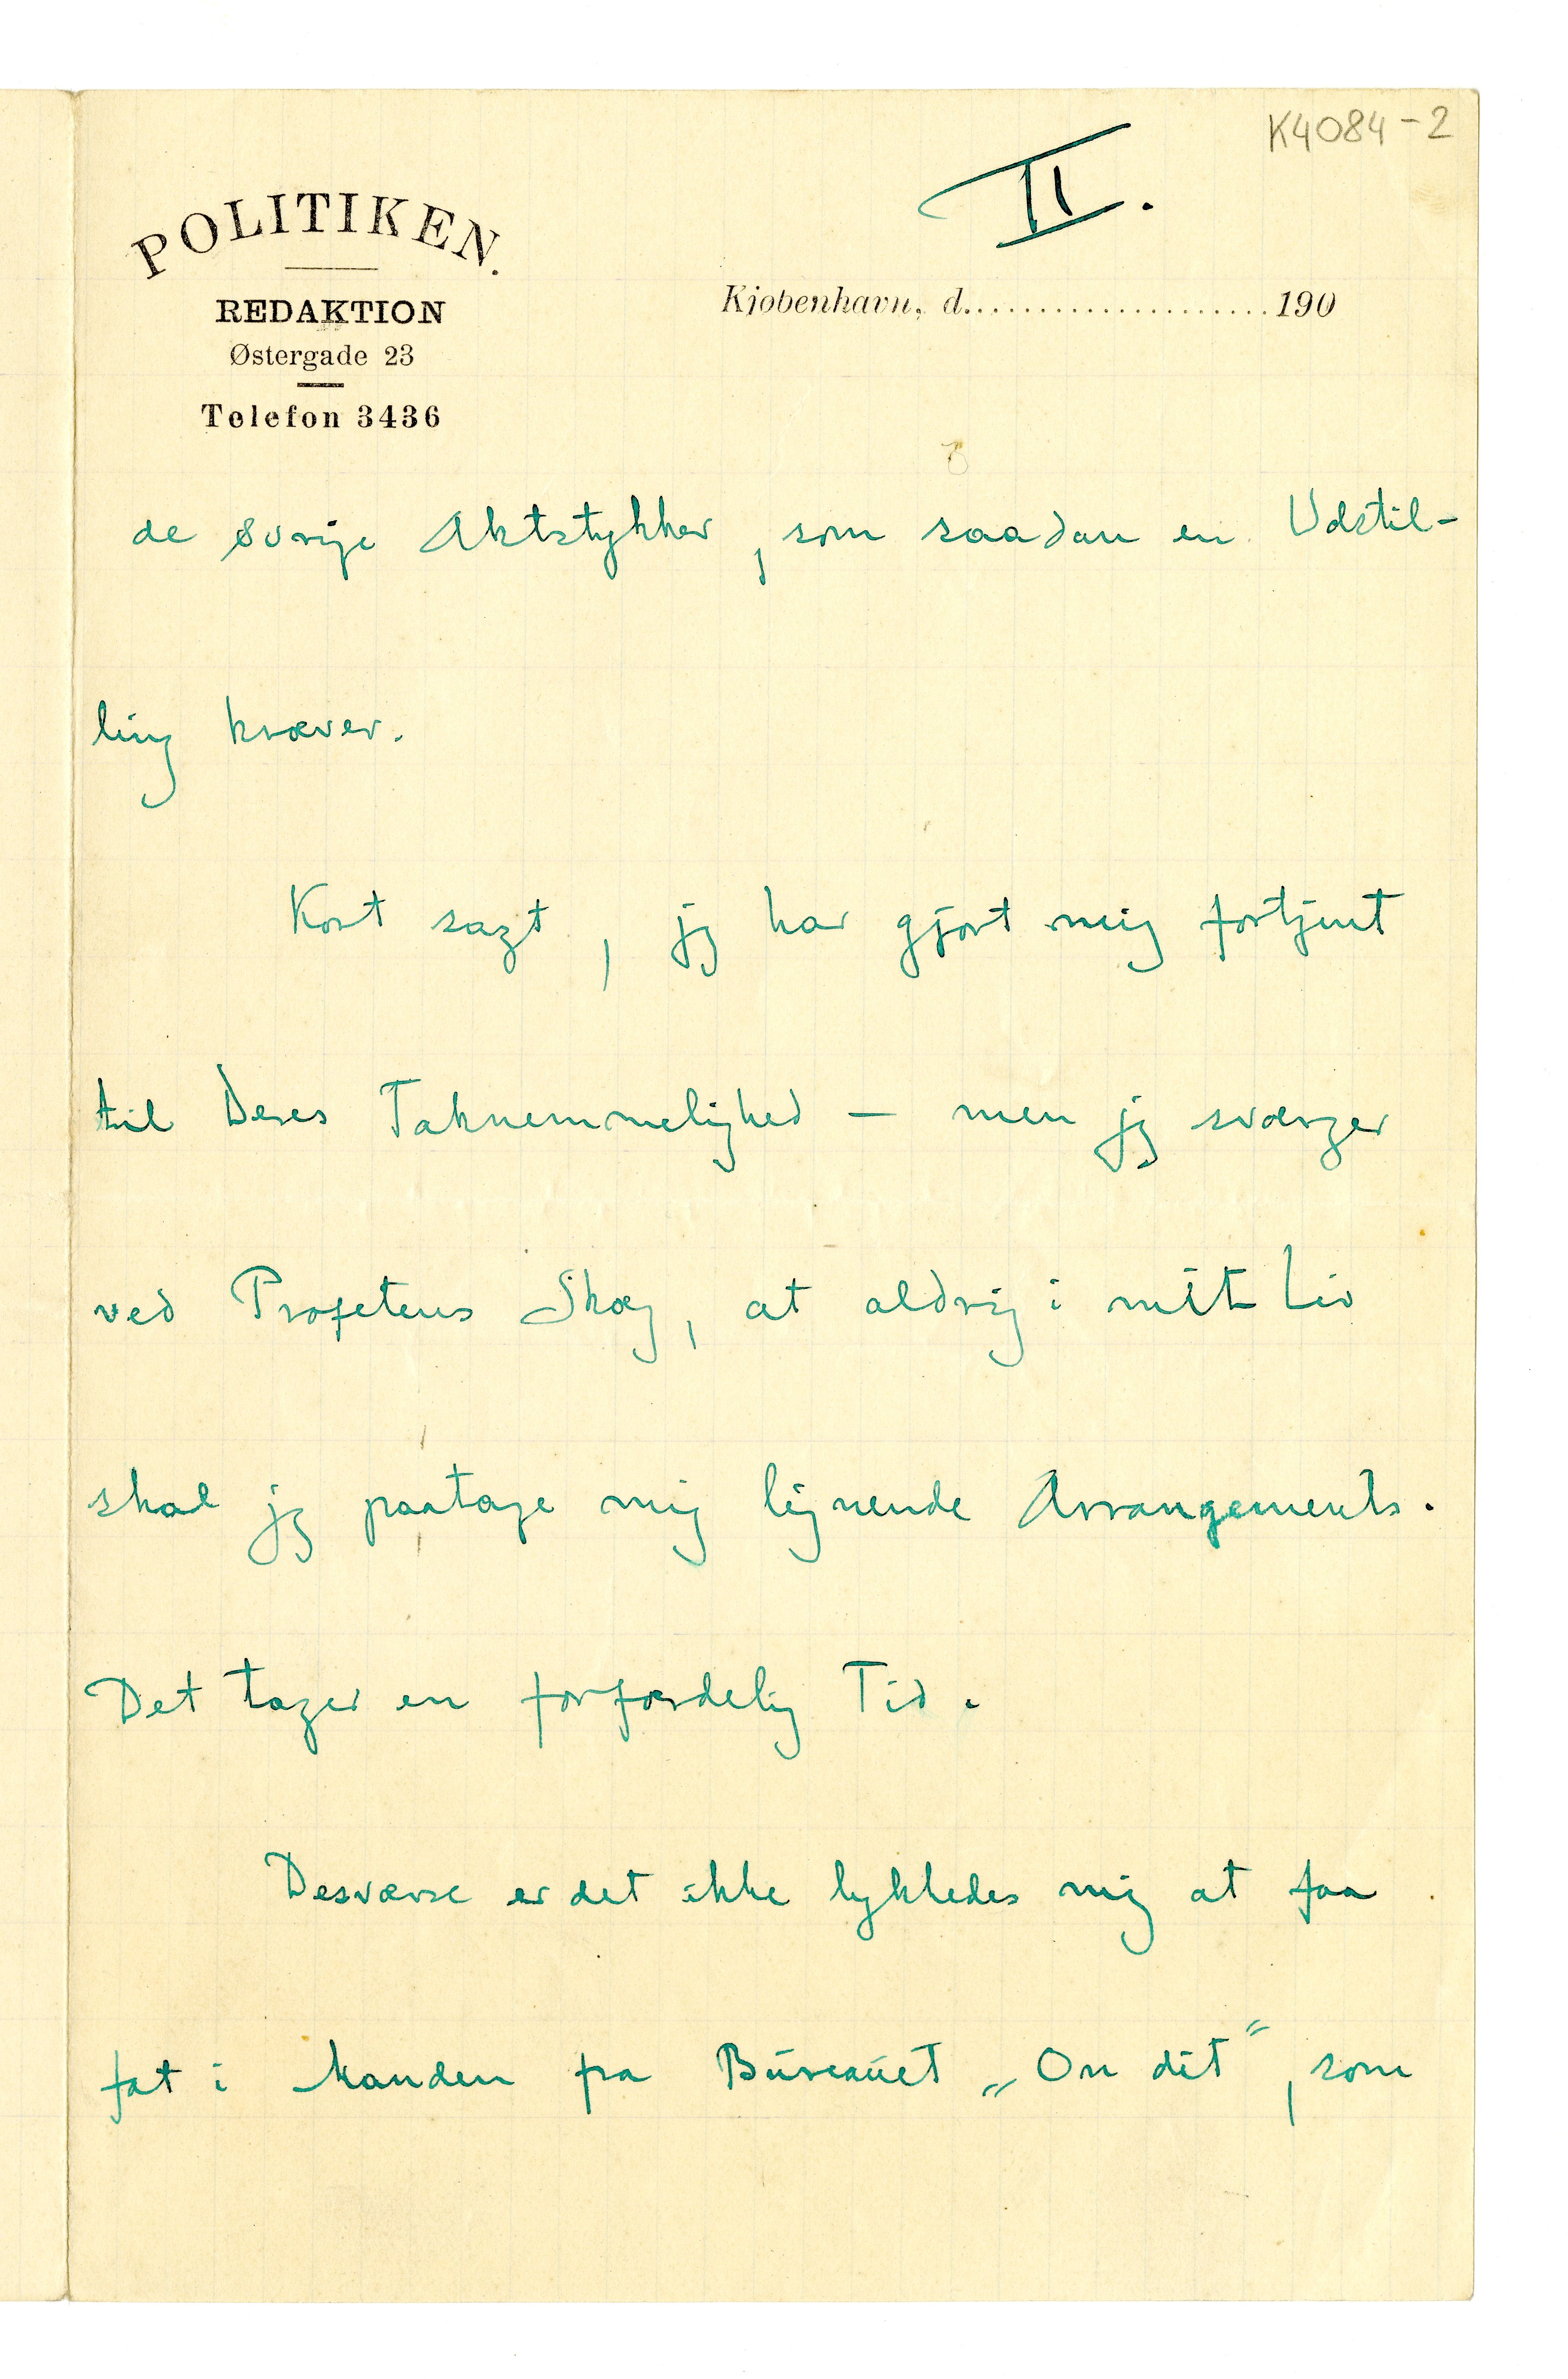 K4084-2
II.
POLITIKEN.
REDAKTION
Østergade 23
Telefon 3436
Kjøbenhavn, d.....................190
de øvrige Aktstykker, som saadan en Udstil-
ling kræver.
Kort sagt, jeg har gjort mig fortjent
til Deres Taknemmelighed — men jeg sværger
ved Profetens Skæg, at aldrig i mit Liv
skal jeg paatage mig lignende Arrangements.
Det tager en forfærdelig Tid.
Desværre er det ikke lykkedes mig at faa
fat i Manden fra Bureauet „On dit“, som